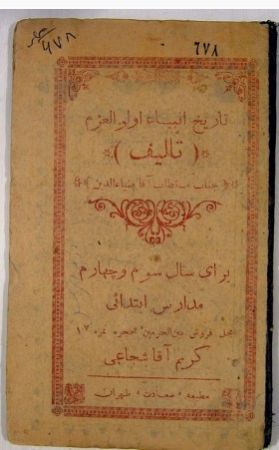 ٦٧٨
٦٧٨
تاریخ انبیاء اولوالعزم
( تالیف )
جناب مستطاب آقا ضیاءالدین
برای سال سوم و چهارم
مدارس ابتدائی
محل فروش بین‌الحرمین حجره نمره ١٧
کریم آقا شجاعی
مطبعه « سعادت » طهران